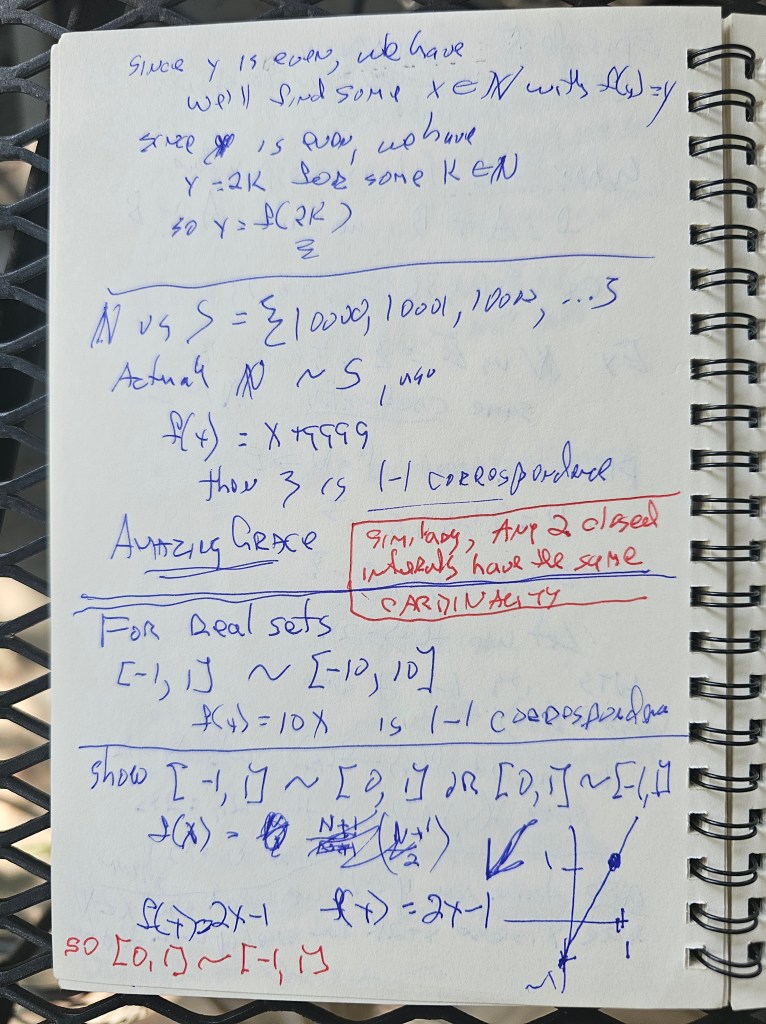 since y is even, we have
we'll find some x ∈ N with f(x) = y
since y is even, we have
y = 2K for some K ∈ N
so y = f(2K)
N vs S = {10000, 10001, 10002, ...}
Actual N ~ S, use
f(x) = x + 9999
then 3 is 1-1 correspondence
Amazing Grace
Similary, Any 2 closed
intervals have the same
CARDINALITY
For Real sets
[-1, 1] ~ [-10, 10]
f(x) = 10x is 1-1 correspondence
show [-1, 1] ~ [0, 1] or [0, 1] ~ [-1, 1]
f(x) = (N+1/2)
1
f(x) = 2x-1 f(x) = 2x-1
1
so [0, 1] ~ [-1, 1]
-1